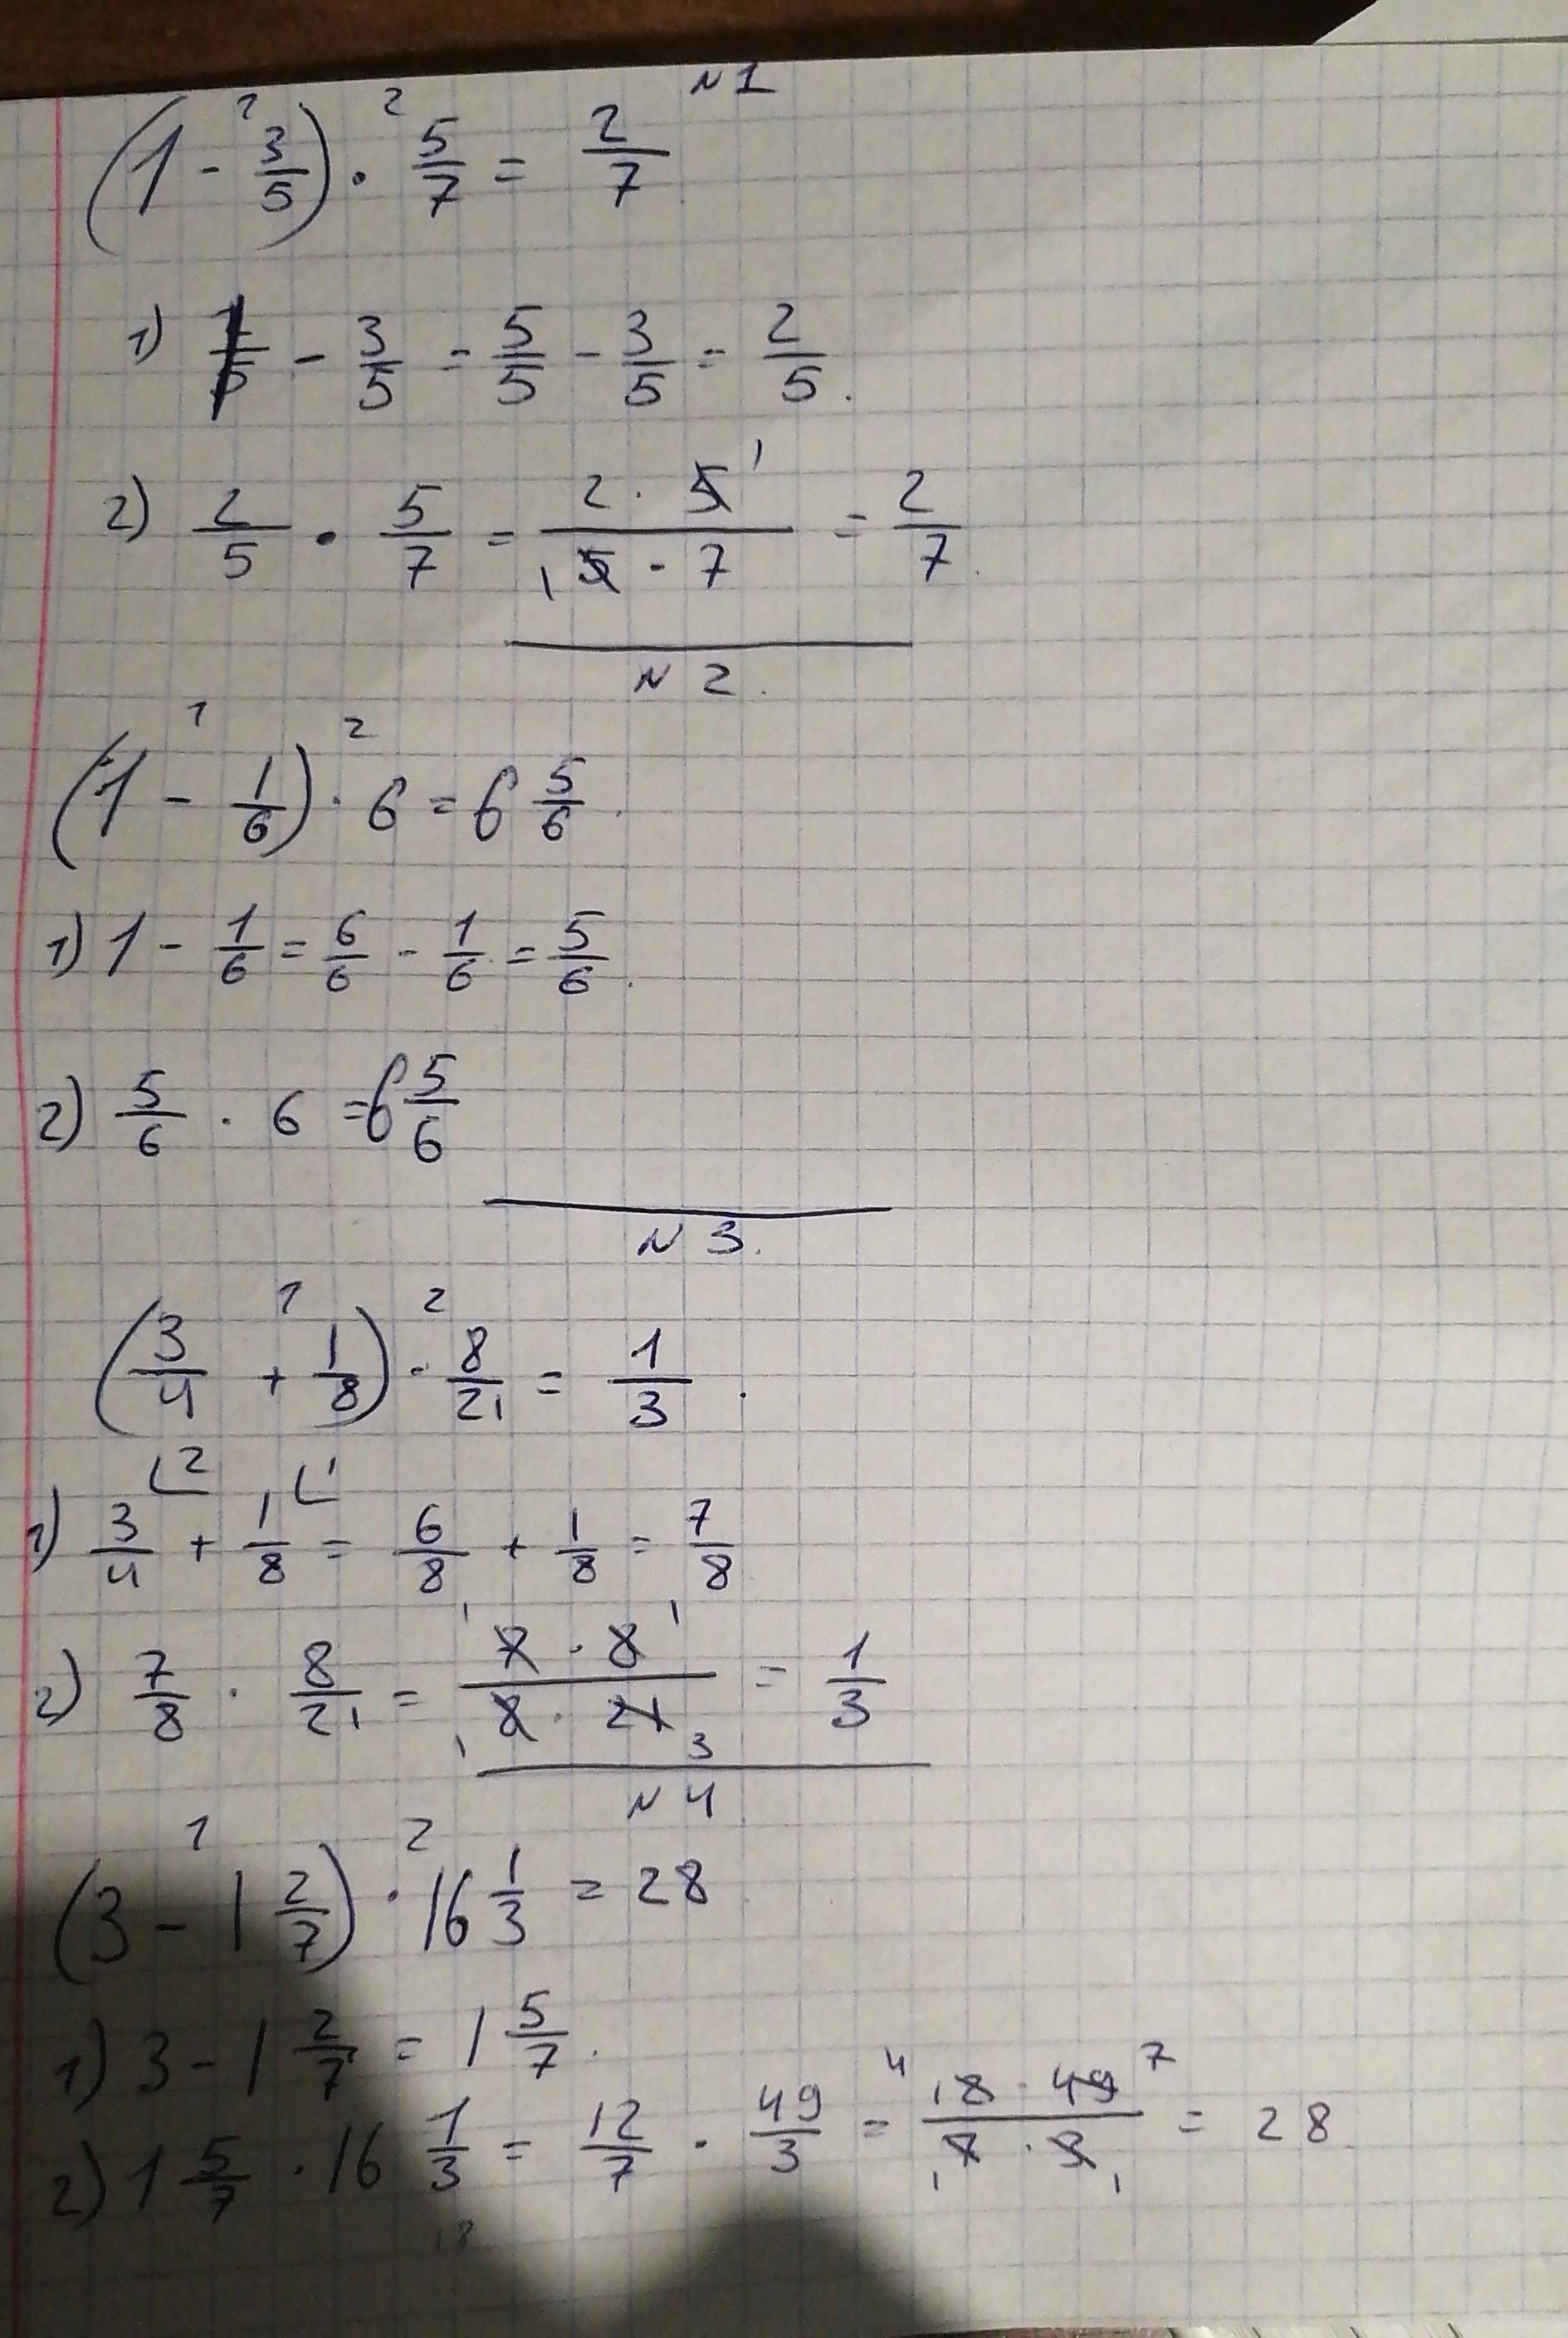 N1
(1 - 3/5) · 5/7 = 2/7
1) - 3/5 = 5/5 - 3/5 = 2/5.
2) 2/5 · 5/7 = 2 · 5 / 5 · 7 = 2/7.
N 2.
(1 - 1/6) · 6 = 6 5/6.
1) 1 - 1/6 = 6/6 - 1/6 = 5/6.
2) 5/6 · 6 = 6 5/6
N 3.
(3/4 + 1/8) · 8/21 = 1/3.
1) 3/4 + 1/8 = 6/8 + 1/8 = 7/8
2) 7/8 · 8/21 = 7 · 8 / 8 · 21 = 1/3
N 4
(3 - 1 2/7) · 16 1/3 = 28
1) 3 - 1 2/7 = 1 5/7.
2) 1 5/7 · 16 1/3 = 12/7 · 49/3 = 12 · 49 / 7 · 3 = 28